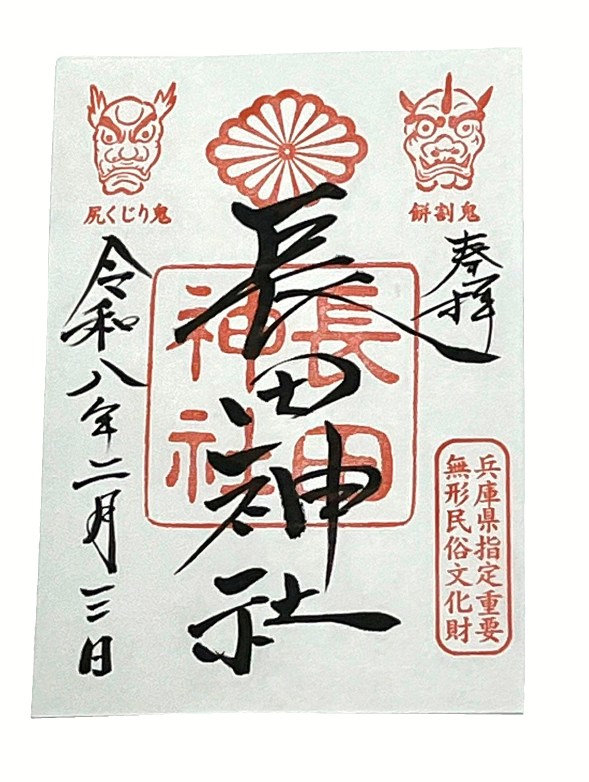 尻くじり鬼
餅割鬼
奉拝
長田神社
長田
神社
兵庫県指定重要
無形民俗文化財
令和八年二月三日